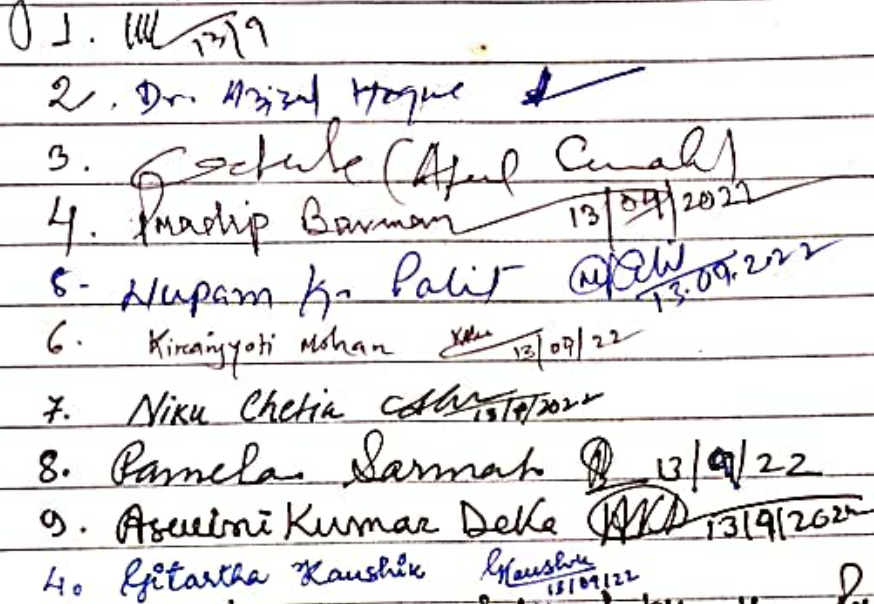 1. 13/9
2. Dr. Azizul Hoque
3. (Atul
4. Pradip Barman 13/09/2022
5- Nupam Kr. Palit 13.09.2022
6. Kiranjyoti Mohan 13/09/22
7. Niku Chetia 13/9/2022
8. Pamela Sarmah 13/9/22
9. Aswini Kumar Deka AKD 13/9/2022
4. Gitartha Kaushik Kaushik 13/09/22